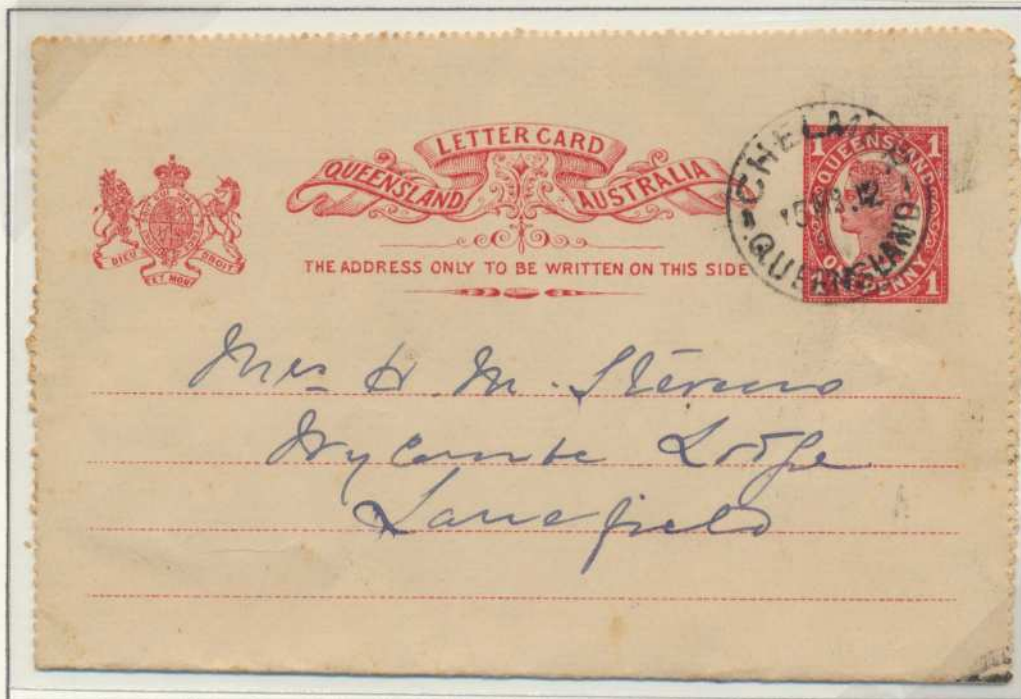 LETTER CARD
QUEENSLAND AUSTRALIA
DIEU ET MON DROIT
THE ADDRESS ONLY TO BE WRITTEN ON THIS SIDE
1 QUEENSLAND 1
ONE PENNY 1
QUEENSLAND
Mrs H. M. Stevens
Wycombe Lodge
Lanefield